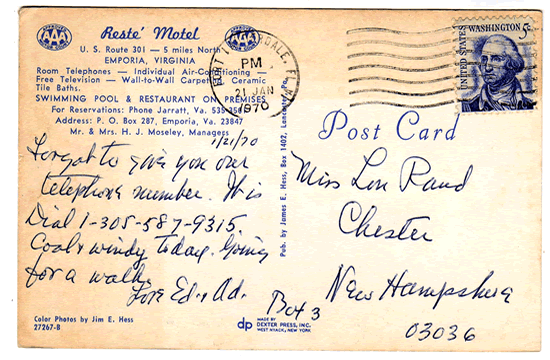 APPROVED
AAA
Resté Motel
APPROVED
AAA
U. S. Route 301 — 5 miles North
EMPORIA, VIRGINIA
Room Telephones — Individual Air-Conditioning —
Free Television — Wall-to-Wall Carpet — Ceramic
Tile Baths.
SWIMMING POOL & RESTAURANT ON PREMISES
For Reservations: Phone Jarratt, Va. 535-
Address: P. O. Box 287, Emporia, Va. 23847
Mr. & Mrs. H. J. Moseley, Managers
FORT LAUDERDALE, FLA.
PM
21 JAN
1970
UNITED STATES
WASHINGTON 5c
1/21/70
Forgot to give you our
telephone number. It is
Dial 1-305-587-9315.
Cool & windy today. Going
for a walk.
Love Ed. & Ad.
Color Photos by Jim E. Hess
27267-B
Pub. by James E. Hess, Box 1402, Lancaster,
dp MADE BY
DEXTER PRESS, INC.
WEST NYACK, NEW YORK
Post Card
Miss Lou Rand
Chester
New Hampshire
Box 3
03036